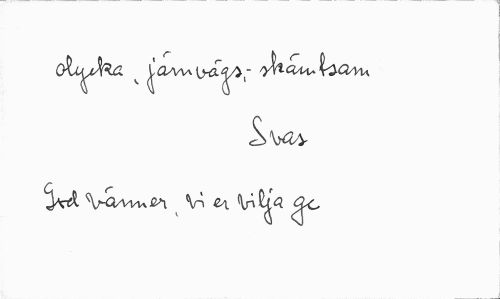 olycka, järnvägs,- skämtsam
Svas
God vänner, vi er vilja ge